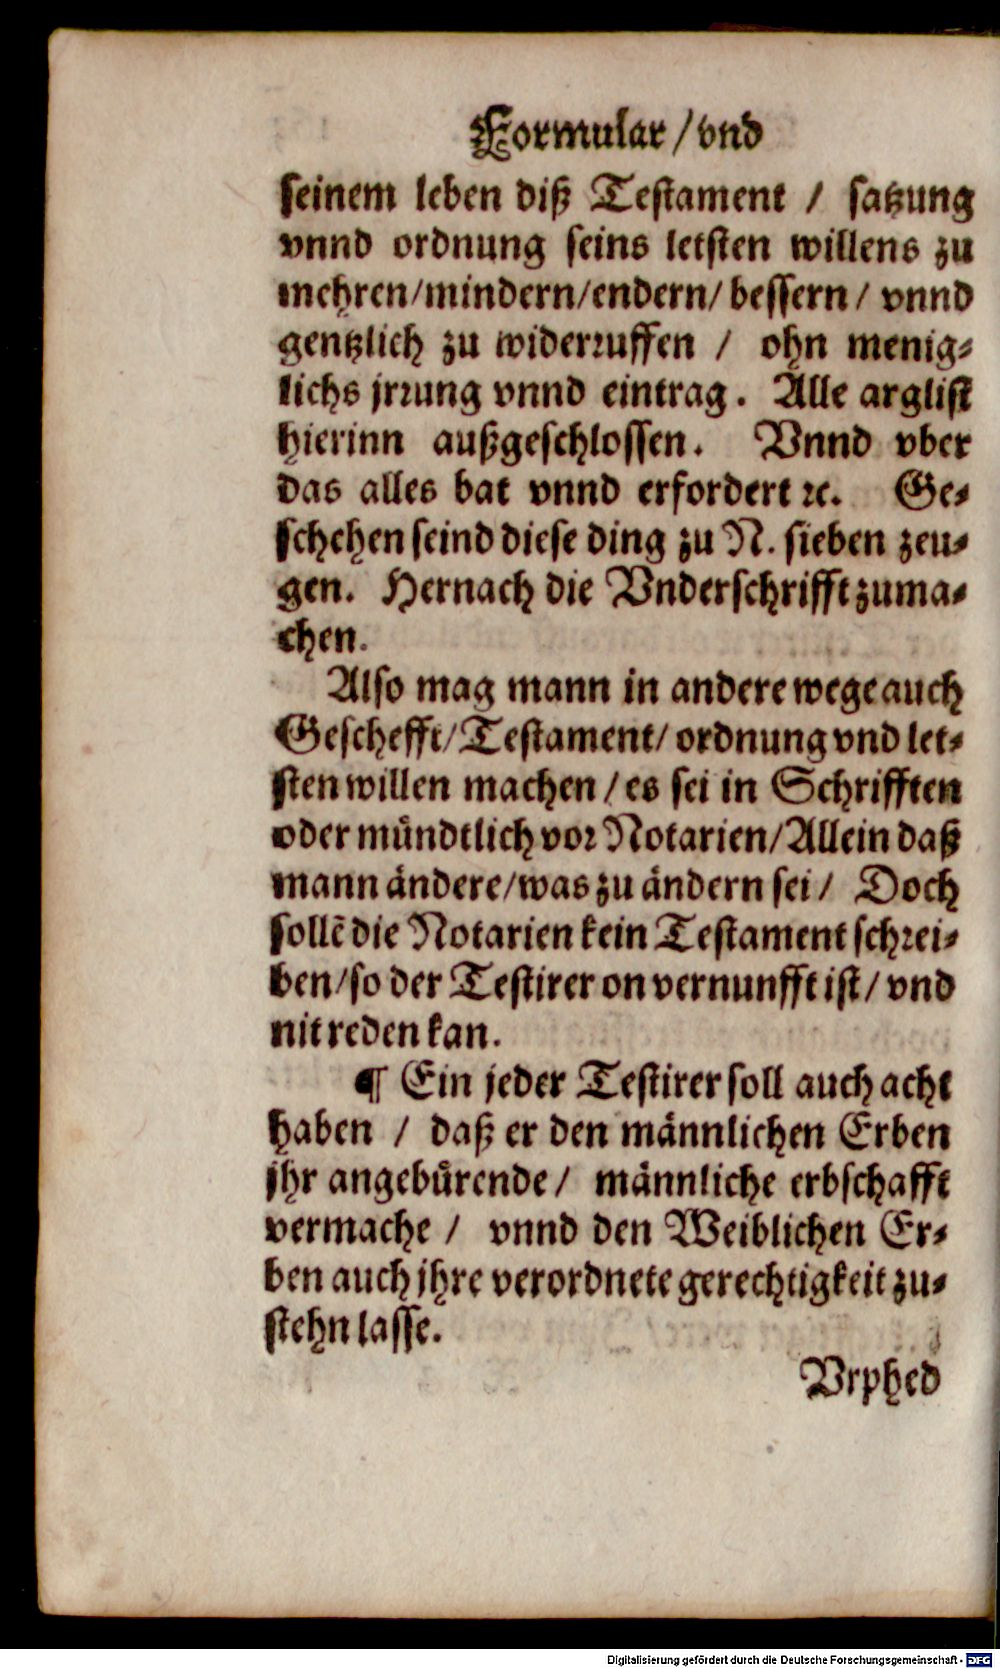 Formular / vnd
seinem leben diß Testament / satzung
vnnd ordnung seins letsten willens zu
mehren/mindern/endern/ bessern / vnnd
gentzlich zu widerruffen / ohn menig⸗
lichs jrrung vnnd eintrag. Alle arglist
hierinn außgeschlossen. Vnnd vber
das alles bat vnnd erfordert ꝛc. Ge⸗
schehen seind diese ding zu N. sieben zeu⸗
gen. Hernach die Vnderschrifft zuma⸗
chen.
Also mag mann in andere wege auch
Geschefft/ Testament/ ordnung vnd let⸗
sten willen machen / es sei in Schrifften
oder muͤndtlich vor Notarien/ Allein daß
mann aͤndere/was zu aͤndern sei / Doch
sollẽ die Notarien kein Testament schrei⸗
ben/so der Testirer on vernunfft ist/ vnd
nit reden kan.
¶ Ein jeder Testirer soll auch acht
haben / daß er den maͤnnlichen Erben
jhr angebuͤrende / maͤnnliche erbschafft
vermache / vnnd den Weiblichen Er⸗
ben auch jhre verordnete gerechtigkeit zu⸗
stehn lasse.
Vrphed
Digitalisierung gefördert durch die Deutsche Forschungsgemeinschaft - DFG